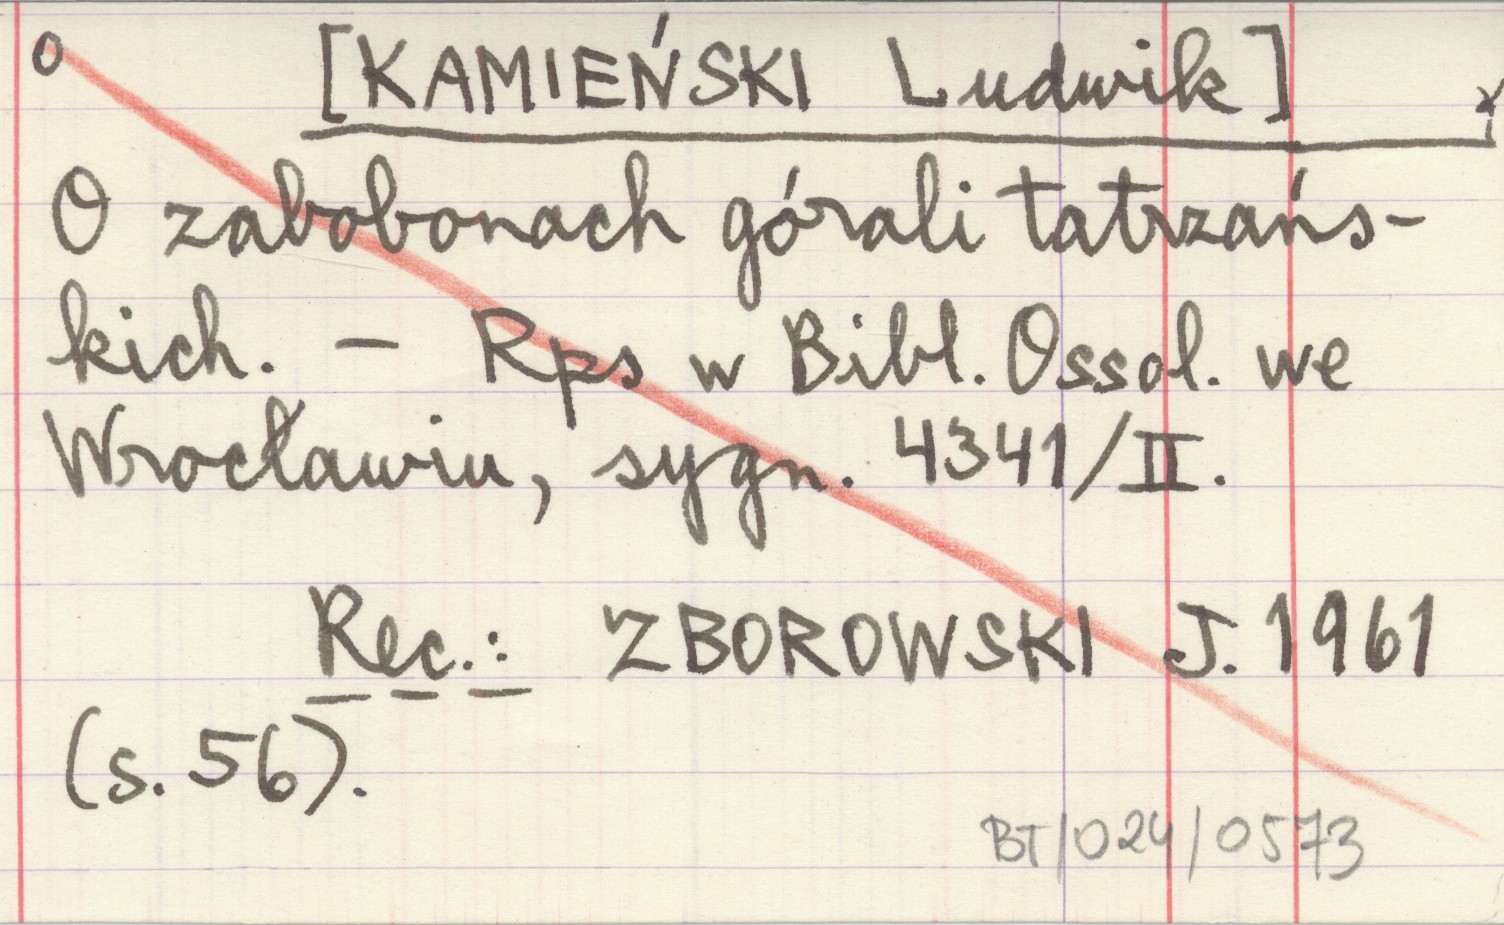 o [KAMIEŃSKI Ludwik]
O zabobonach górali tatrzańs-
kich. – Rps w Bibl. Ossol. we
Wrocławiu, sygn. 4341/II.
Rec.: ZBOROWSKI J. 1961
(s. 56).
BT/024/0573